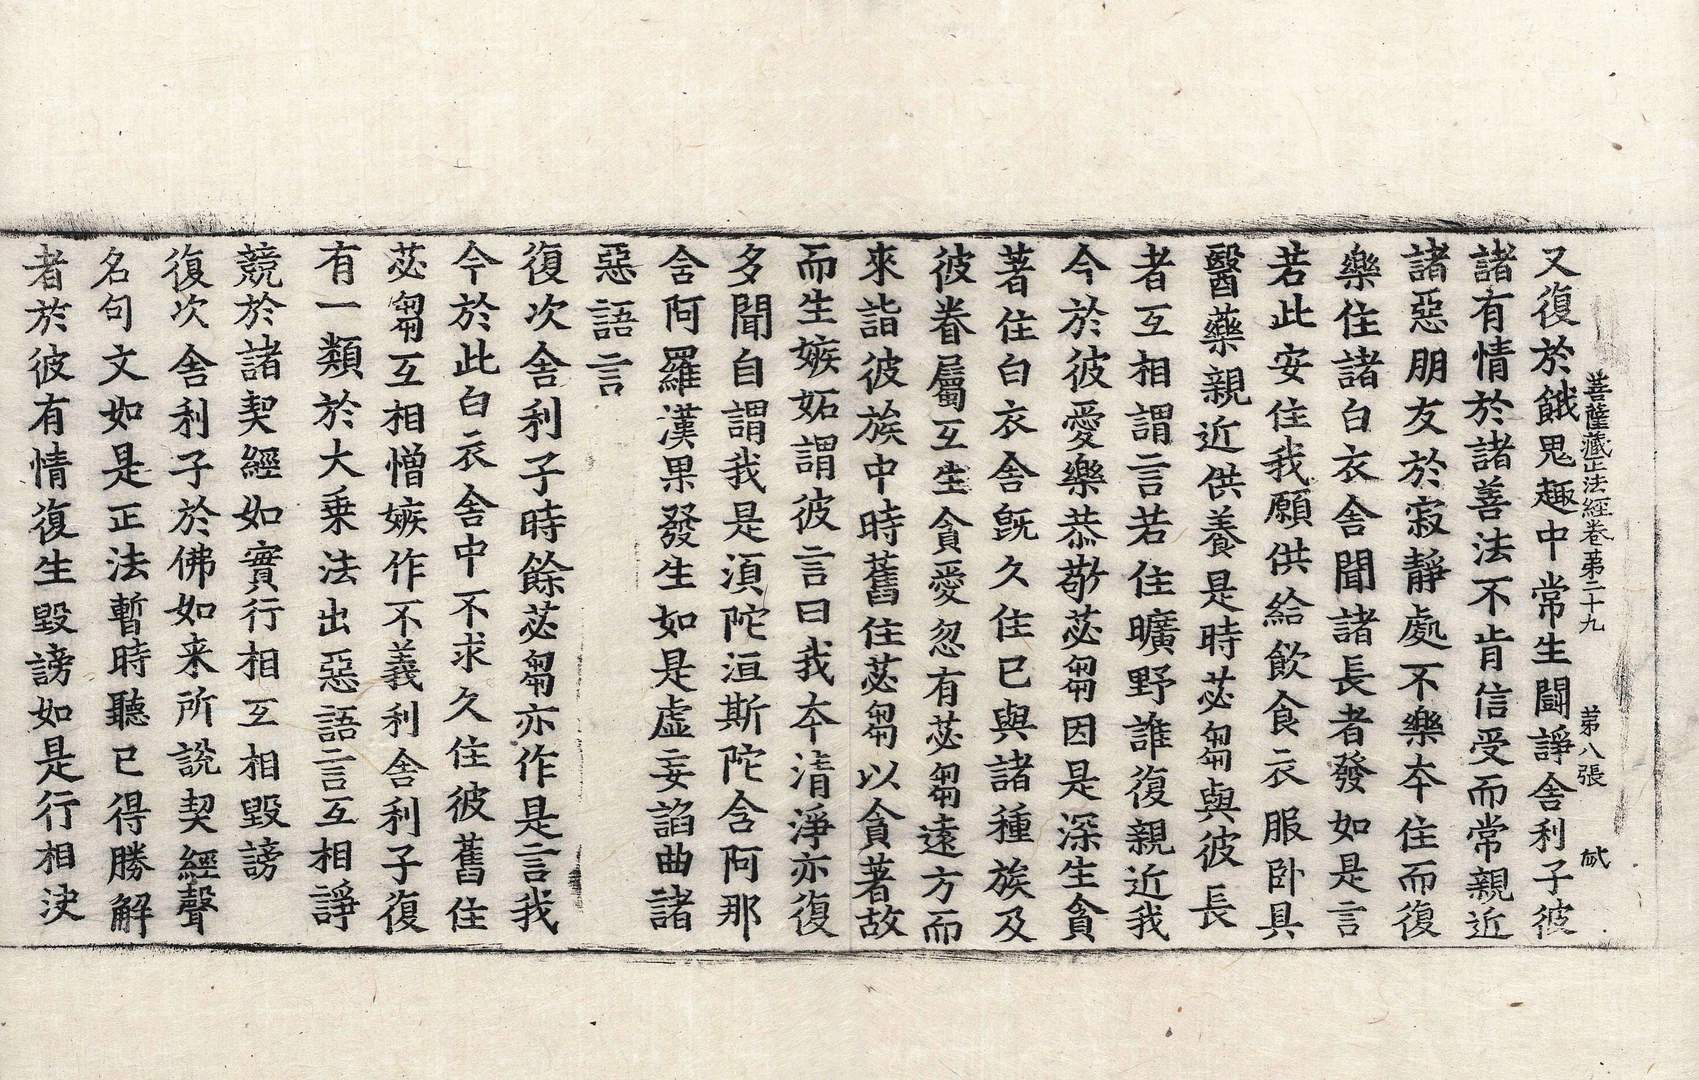 菩薩藏正法經卷第二十九　第八張　賦
又復於餓鬼趣中常生鬪諍舍利子彼
諸有情於諸善法不肯信受而常親近
諸惡朋友於寂靜處不樂夲住而復
樂住諸白衣舍聞諸長者發如是言
若此安住我願供給飲食衣服卧具
醫藥親近供養是時苾芻與彼長
者互相謂言若住曠野誰復親近我
今於彼愛樂恭敬苾芻因是深生貪
著住白衣舍旣久住已與諸種族及
彼眷屬互生貪愛忽有苾芻遠方而
來詣彼族中時舊住苾芻以貪著故
而生嫉妬謂彼言曰我夲清淨亦復
多聞自謂我是湏陀洹斯陀含阿那
含阿羅漢果發生如是虛妄諂曲諸
惡語言
復次舍利子時餘苾芻亦作是言我
今於此白衣舍中不求久住彼舊住
苾芻互相憎嫉作不義利舍利子復
有一類於大乗法出惡語言互相諍
競於諸契經如實行相互相毀謗
復次舍利子於佛如来所說契經聲
名句文如是正法暫時聽已得勝解
者於彼有情復生毀謗如是行相決